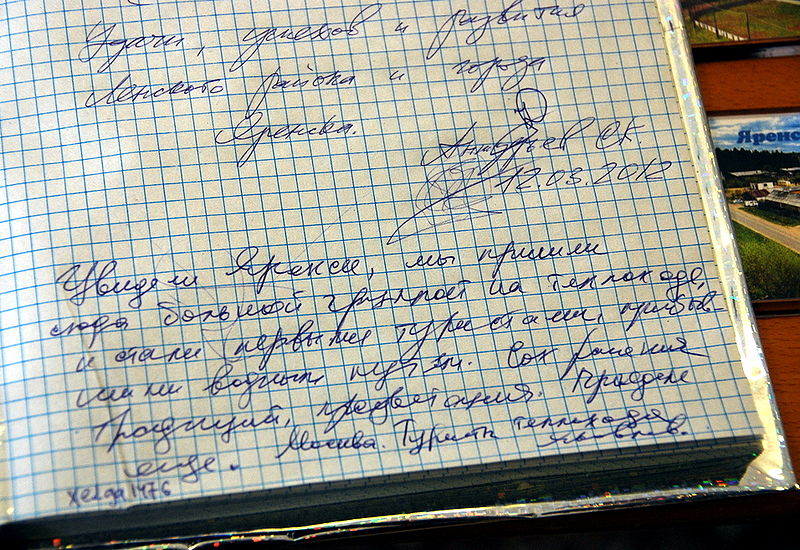 Удачи, успехов и развития
Ленского района и города
Яренска.
СК.
12.03.2012
Увидели Яренск, мы пришли
сюда большой группой на теплоходе,
и стали первыми туристами, прибыв-
шими водным путём. Сохранения
традиций, процветания. Приедем
еще. Москва. Туристы теплохода
xelga1476
Яренс